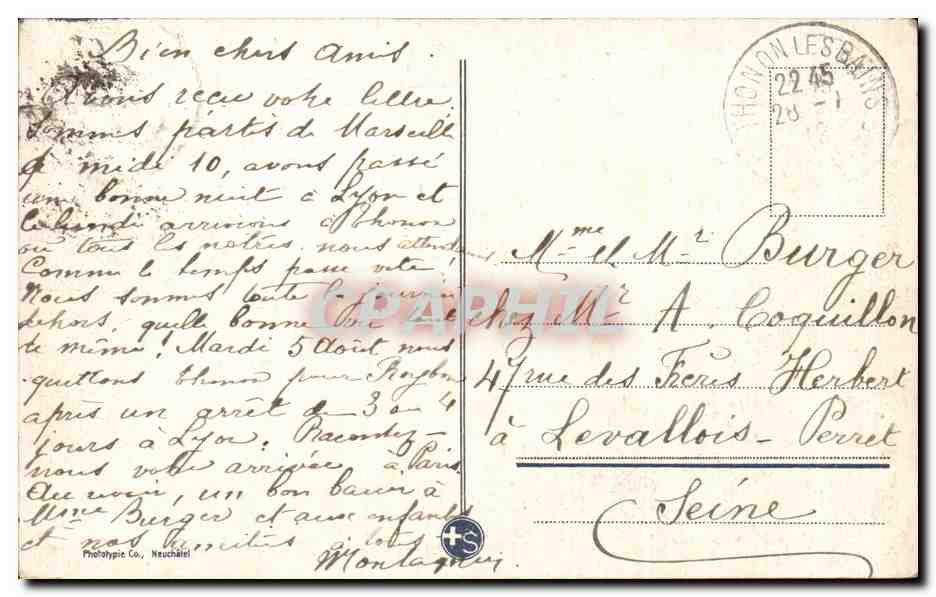 Bien chers amis.
Avons reçu votre lettre.
Sommes partis de Marseille
à midi 10, avons passé
une bonne nuit à Lyon et
le lundi arrivions à Thonon
où tous les nôtres nous attendaient
Comme le temps passe vite!
Nous sommes toute la journée
dehors, quelle bonne vie tout
de même! Mardi 5 Août nous
quittons Thonon pour Roybon
après un arrêt de 3 ou 4
jours à Lyon. Racontez-
nous votre arrivée à Paris
Au revoir, un bon baiser à
Mme Burger et aux enfants
et nos amitiés à tous
Phototypie Co., Neuchâtel
THONON LES BAINS
22 45
28 -
Mme et Mr Burger
chez Mr A. Coquillon
41 rue des Frères Herbert
à Levallois-Perret
Seine
+S
CPAPHIL